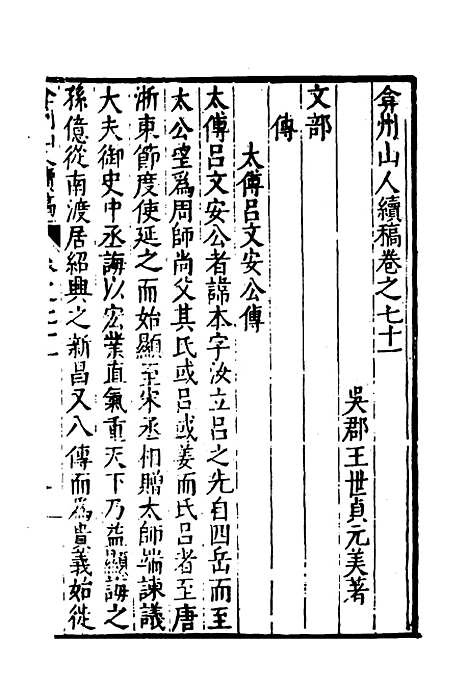 弇州山人續稿卷之七十一
吳郡王世貞元美著
文部
傳
太傅呂文安公傳
太傅呂文安公者諱本字汝立呂之先自四岳而至
太公望爲周師尚父其氏或呂或姜而氏呂者至唐
浙東節度使延之而始顯至宋丞相贈太師端諫議
大夫御史中丞誨以宏業直氣重天下乃益顯誨之
孫億從南渡居紹興之新昌又八傳而爲貴義始徙